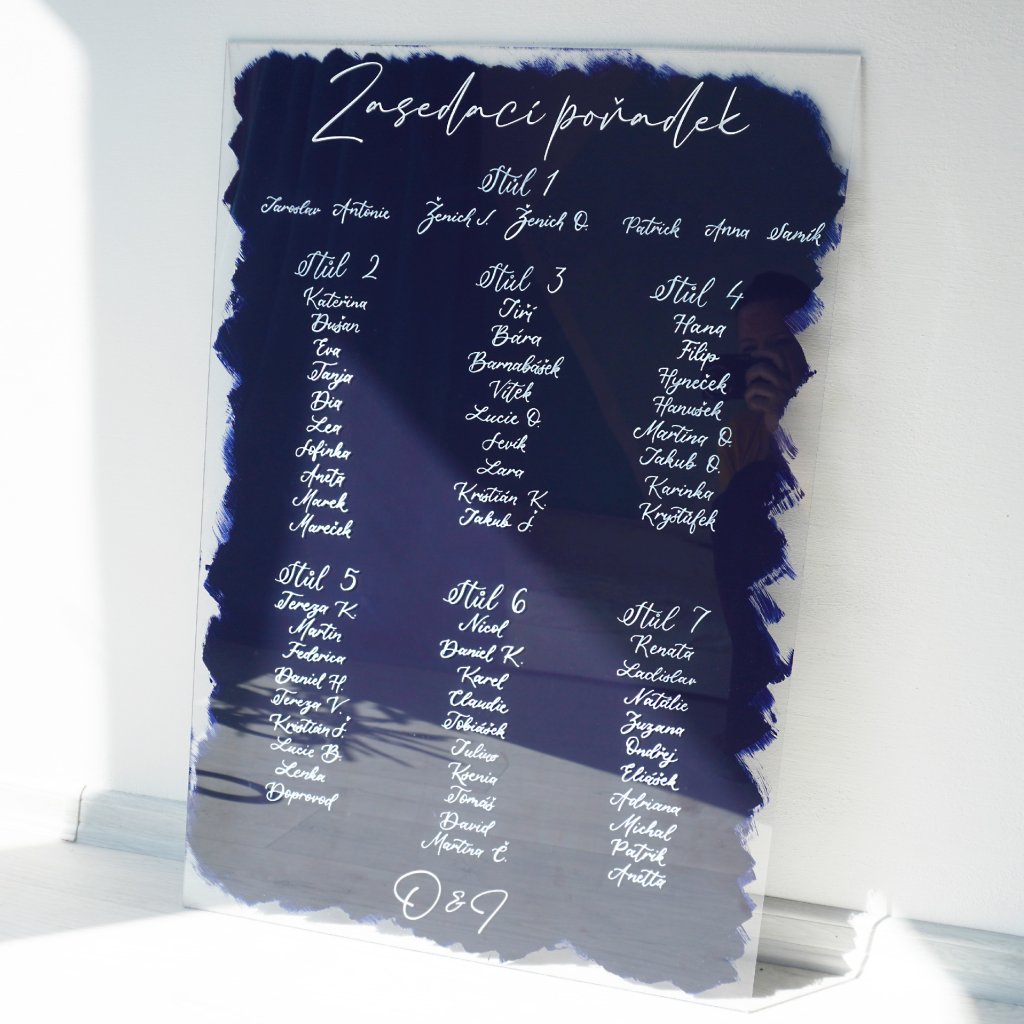 Zasedací pořádek
Stůl 1
Jaroslav Antonie Ženich J. Ženich O. Patrick Anna Samík
Stůl 2
Kateřina
Dušan
Eva
Tanja
Dia
Lea
Sofinka
Aneta
Marek
Mareček
Stůl 3
Jiří
Bára
Barnabášek
Vítek
Lucie O.
Sevik
Lara
Kristián K.
Jakub J.
Stůl 4
Hana
Filip
Hyneček
Hanušek
Martina O.
Jakub O.
Karinka
Kryštůfek
Stůl 5
Tereza K.
Martin
Federica
Daniel H.
Tereza V.
Kristián J.
Lucie B.
Lenka
Doprovod
Stůl 6
Nicol
Daniel K.
Karel
Claudie
Tobiášek
Julius
Ksenia
Tomáš
David
Martina Č.
Stůl 7
Renata
Ladislav
Natálie
Zuzana
Ondřej
Eliášek
Adriana
Michal
Patrik
Anetta
O & J